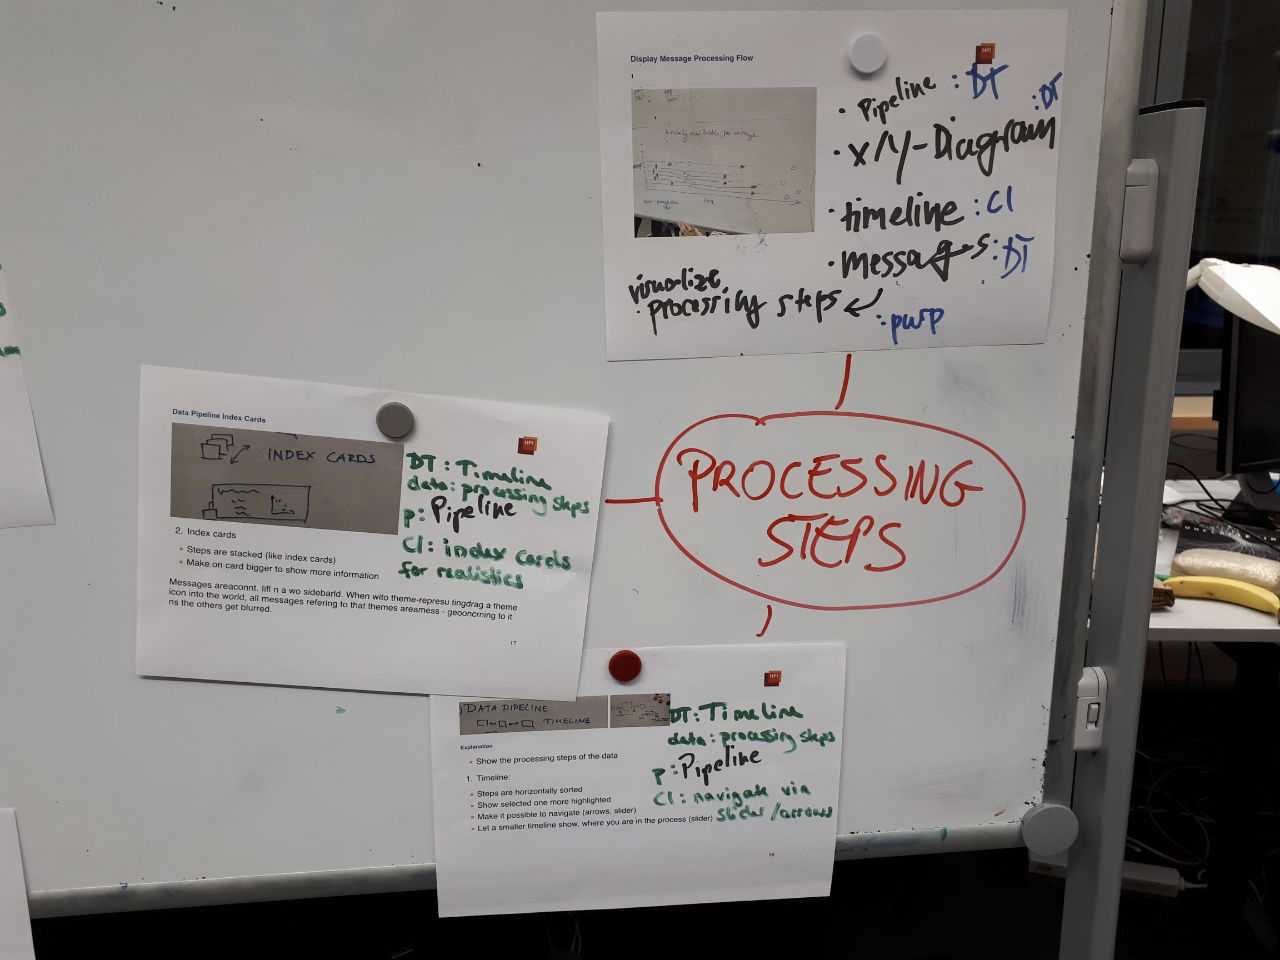 Display Message Processing Flow
HPI
• Pipeline : DT
• X/Y-Diagram : DT
• timeline : CI
• messages : DT
visualize
• processing steps : purp
PROCESSING
STEPS
Data Pipeline Index Cards
HPI
INDEX CARDS
DT: Timeline
data: processing steps
p: Pipeline
CI: index cards
for realistics
2. Index cards
• Steps are stacked (like index cards)
• Make on card bigger to show more information
Messages areaconnt. lifl n a wo sidebarld. When wito theme-represu tingdrag a theme
icon into the world, all messages refering to that themes areamess - geooncrning to it
ns the others get blurred.
17
HPI
DATA PIPELINE
TIMELINE
DT: Timeline
data: processing steps
p: Pipeline
CI: navigate via
slider/arrows
Explanation
• Show the processing steps of the data
1. Timeline:
• Steps are horizontally sorted
• Show selected one more highlighted
• Make it possible to navigate (arrows, slider)
• Let a smaller timeline show, where you are in the process (slider)